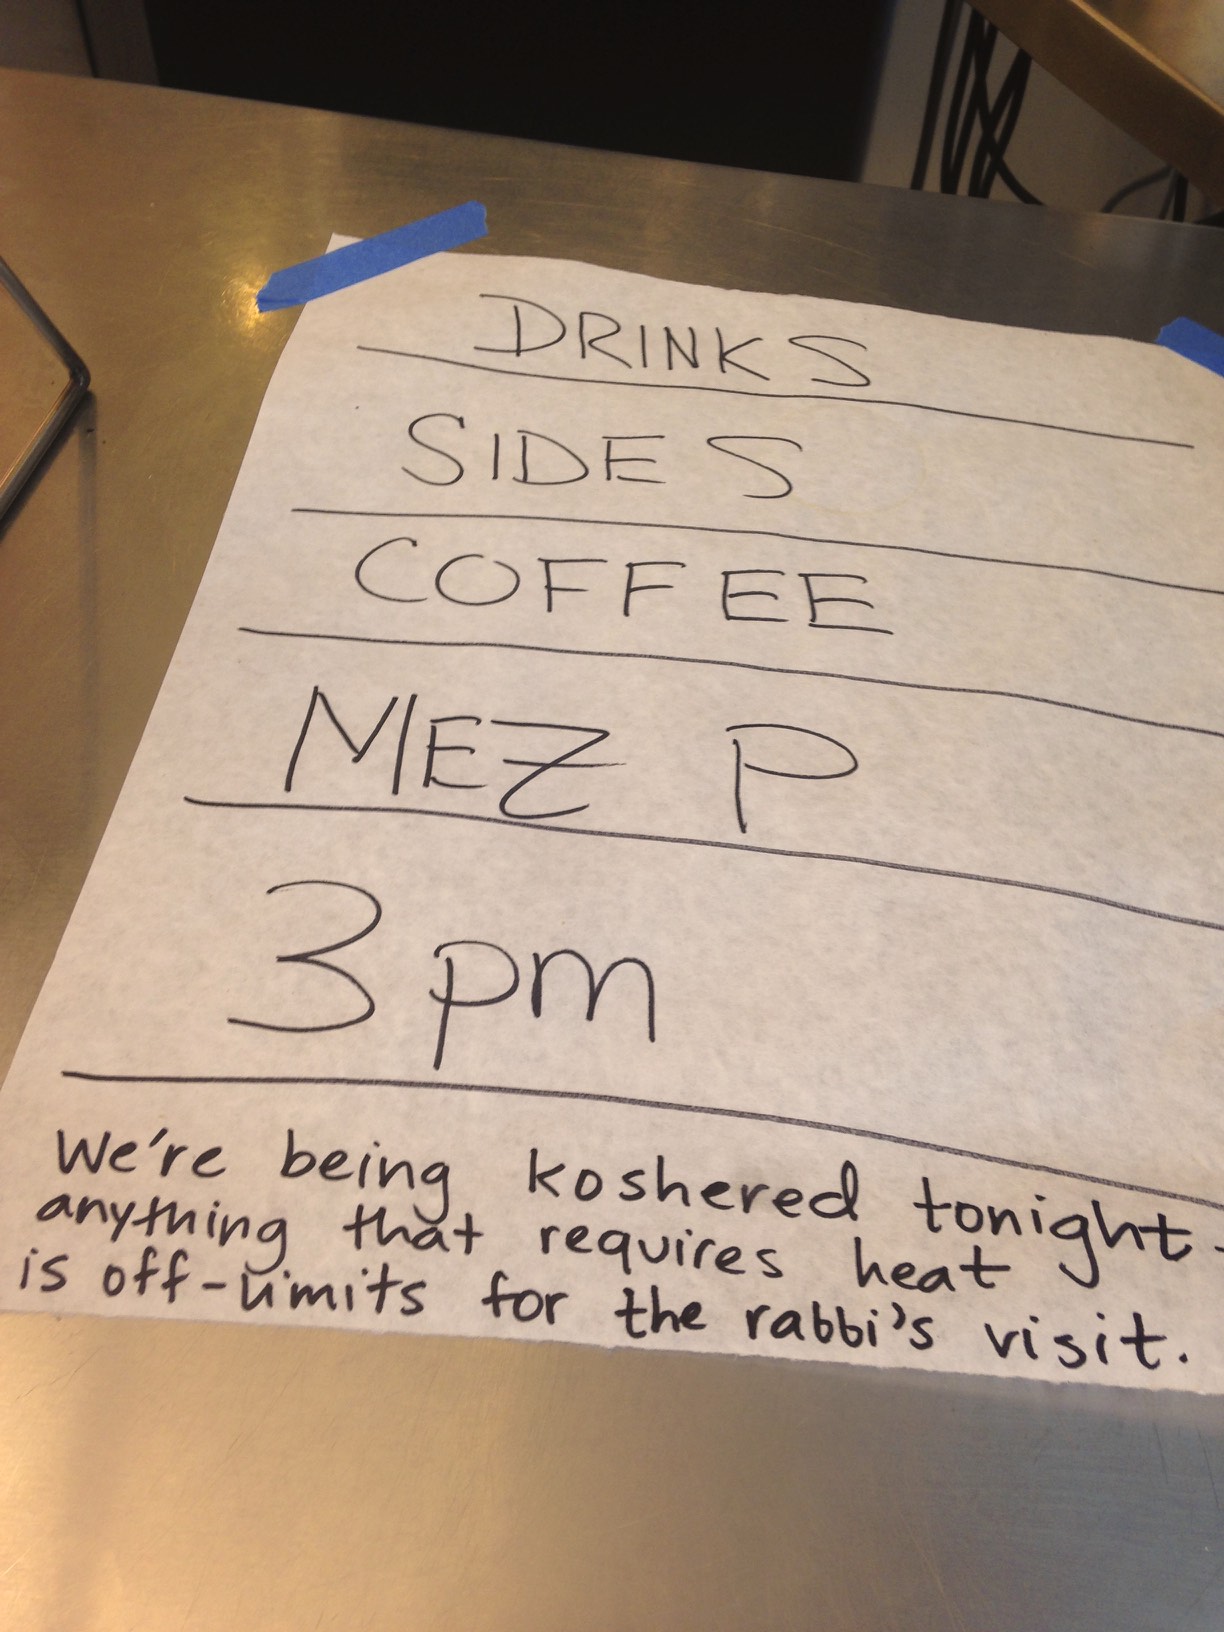 DRINKS
SIDES
COFFEE
MEZ P
3pm
We're being koshered tonight-
anything that requires heat
is off-limits for the rabbi's visit.